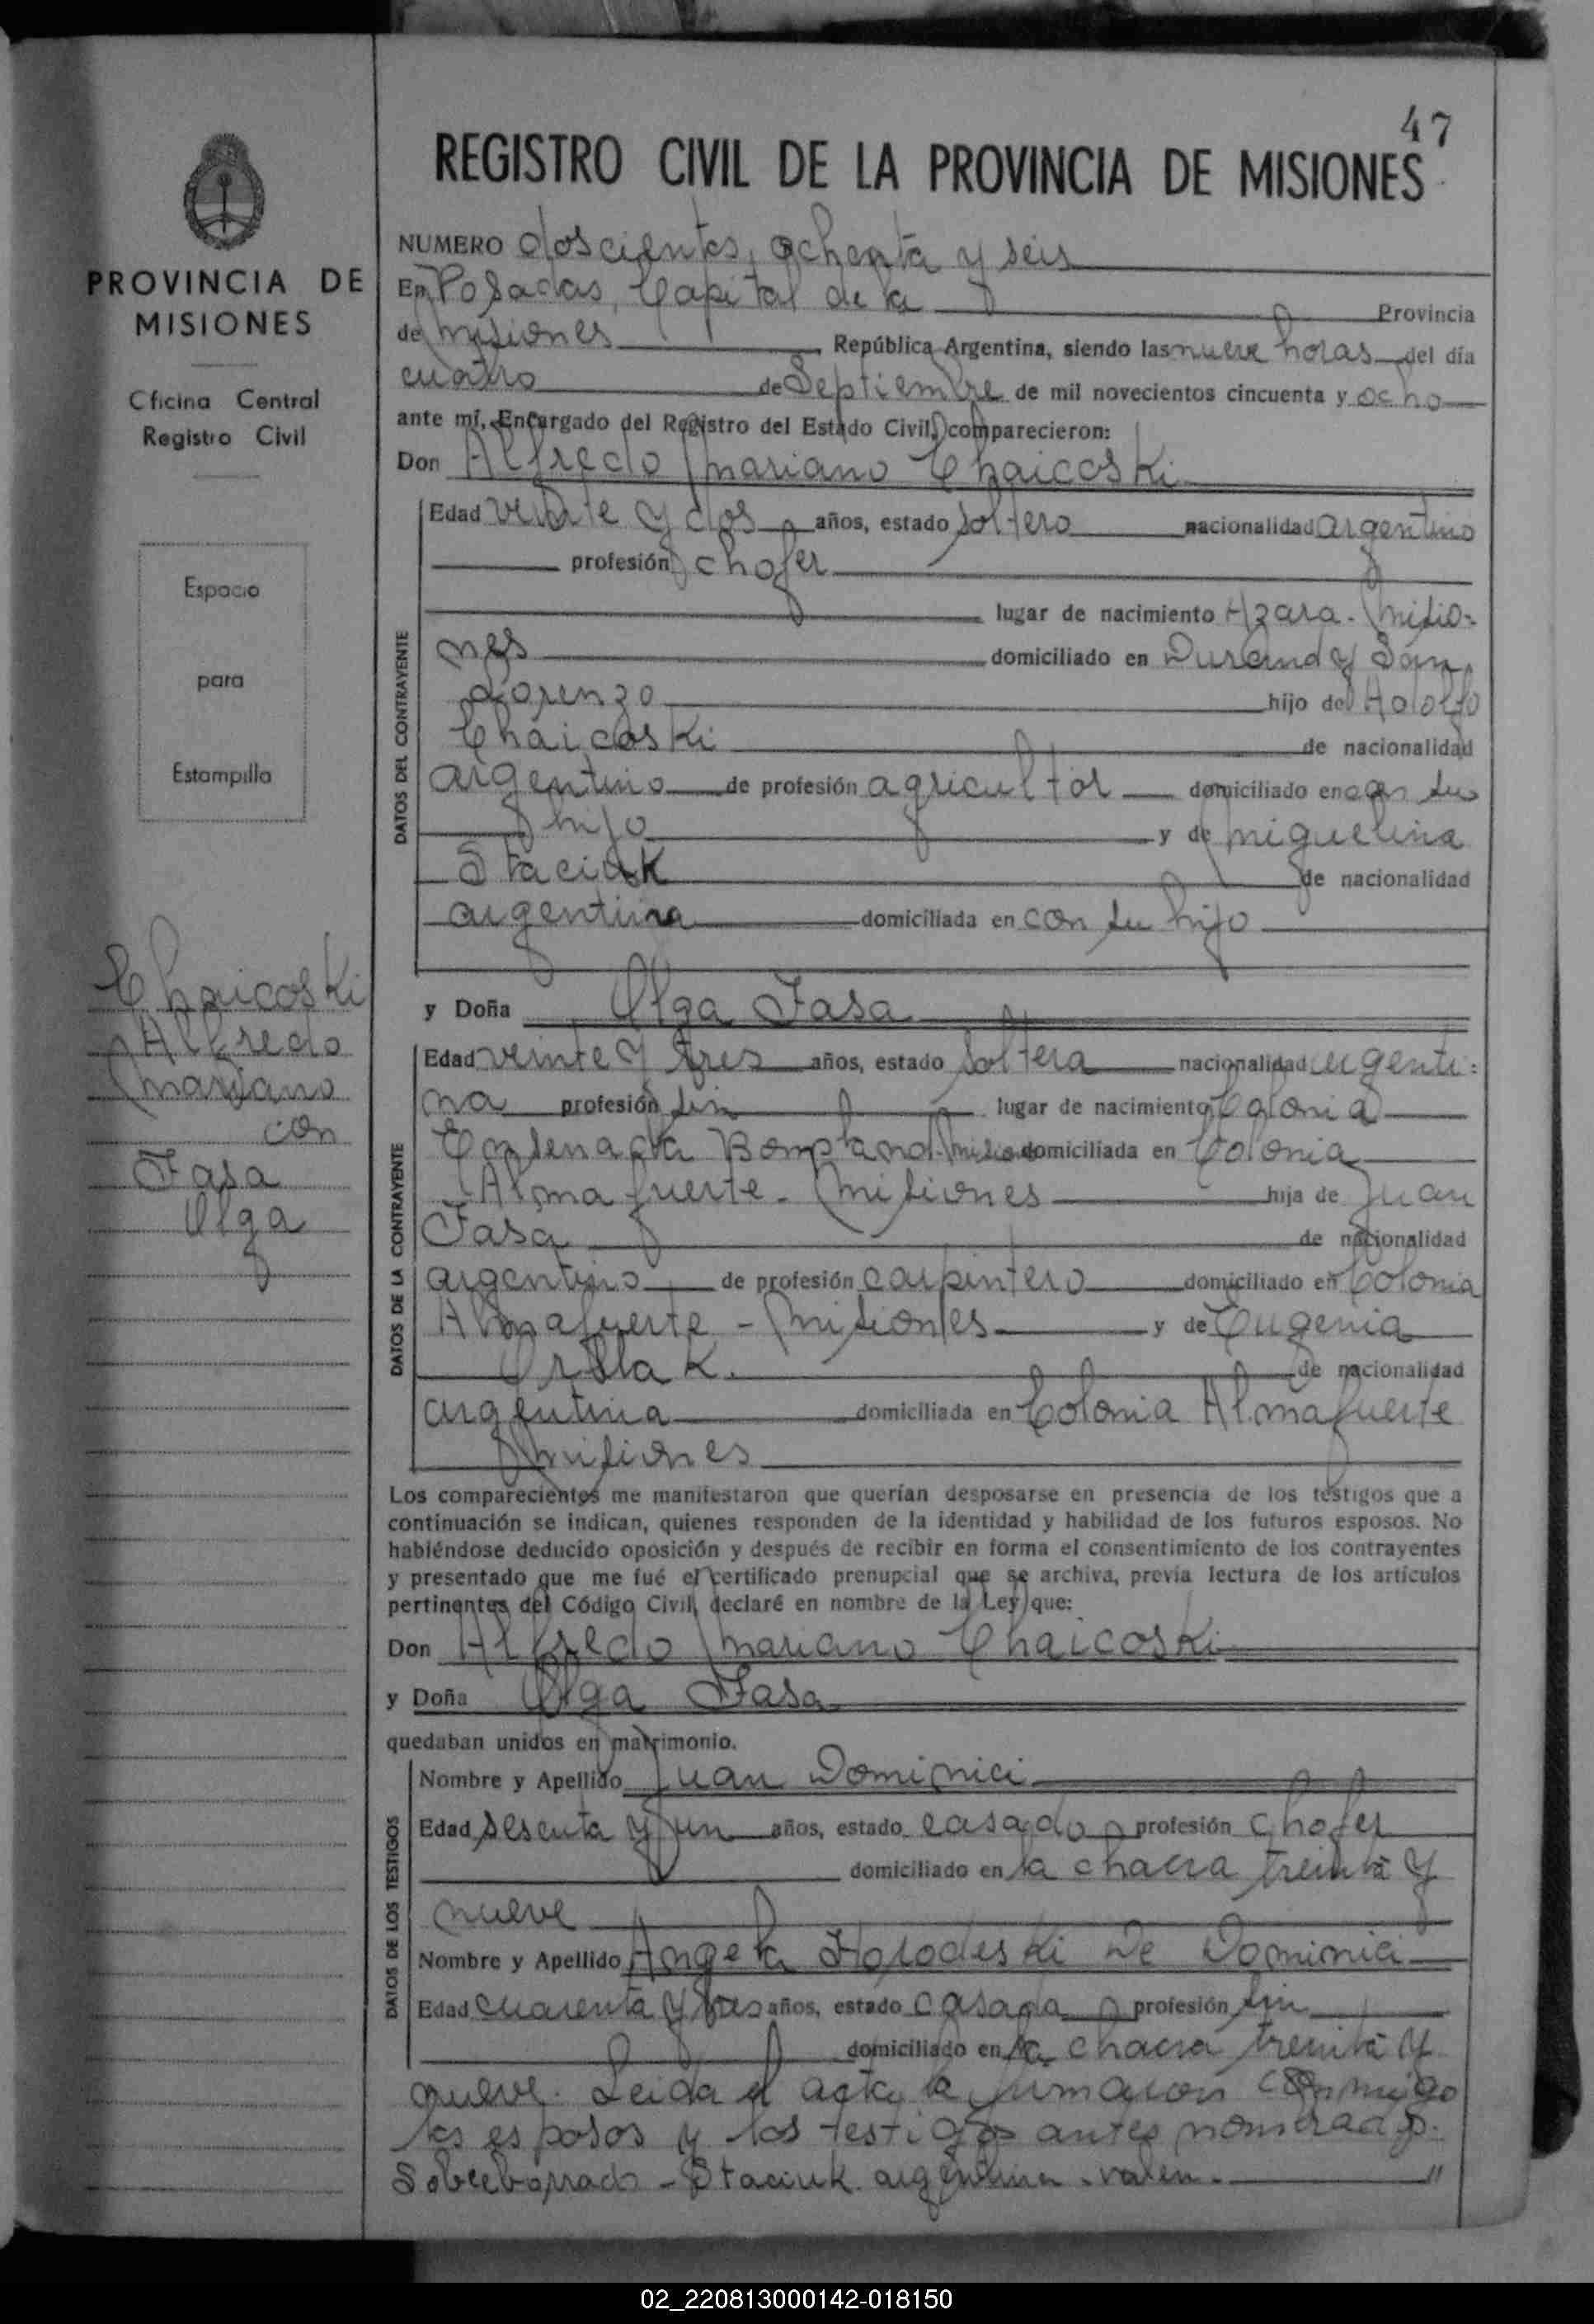 47
REGISTRO CIVIL DE LA PROVINCIA DE MISIONES
PROVINCIA DE
MISIONES
Oficina Central
Registro Civil
Espacio
para
Estampilla
Chaicoski
Alfredo
Mariano
con
Fasa
Olga
NUMERO doscientos, ochenta y seis
En Posadas, Capital de la Provincia
de Misiones, República Argentina, siendo las nueve horas del día
cuatro de Septiembre de mil novecientos cincuenta y ocho
ante mí, Encargado del Registro del Estado Civil, comparecieron:
Don Alfredo Mariano Chaicoski
DATOS DEL CONTRAYENTE
Edad veinte y dos años, estado soltero nacionalidad argentino
profesión chofer
lugar de nacimiento Azara. Misio-
nes domiciliado en Durand y San
Lorenzo hijo de Adolfo
Chaicoski de nacionalidad
argentino de profesión agricultor domiciliado en con su
hijo y de Miguelina
Staciuk de nacionalidad
argentina domiciliada en con su hijo
y Doña Olga Fasa
DATOS DE LA CONTRAYENTE
Edad veinte y tres años, estado soltera nacionalidad argenti-
na profesión sin lugar de nacimiento Colonia
Ensenada Bompland. domiciliada en Colonia
Almafuerte - Misiones hija de Juan
Fasa de nacionalidad
argentino de profesión carpintero domiciliado en Colonia
Almafuerte - Misiones y de Eugenia
de nacionalidad
argentina domiciliada en Colonia Almafuerte
Misiones
Los comparecientes me manifestaron que querían desposarse en presencia de los testigos que a
continuación se indican, quienes responden de la identidad y habilidad de los futuros esposos. No
habiéndose deducido oposición y después de recibir en forma el consentimiento de los contrayentes
y presentado que me fué el certificado prenupcial que se archiva, previa lectura de los artículos
pertinentes del Código Civil, declaré en nombre de la Ley que:
Don Alfredo Mariano Chaicoski
y Doña Olga Fasa
quedaban unidos en matrimonio.
DATOS DE LOS TESTIGOS
Nombre y Apellido Juan Dominici
Edad sesenta y un años, estado casado profesión chofer
domiciliado en la chacra treinta y
nueve
Nombre y Apellido Angela Holodeski De Dominici
Edad cuarenta y tres años, estado casada profesión sin
domiciliado en la chacra treinta y
nueve. Leida el acta la firmaron conmigo
los esposos y los testigos antes nombrados.
Sobreborrado - Staciuk. argentina - valen.
02_220813000142-018150